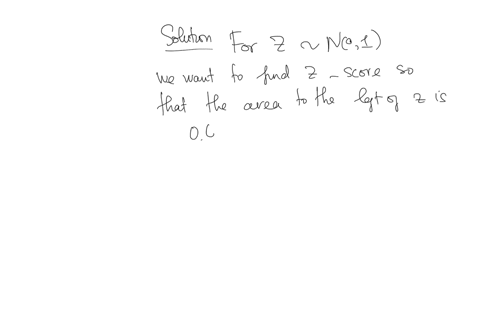 Solution For Z ~ N(0,1)
we want to find Z-score so
that the area to the left of z is
0.